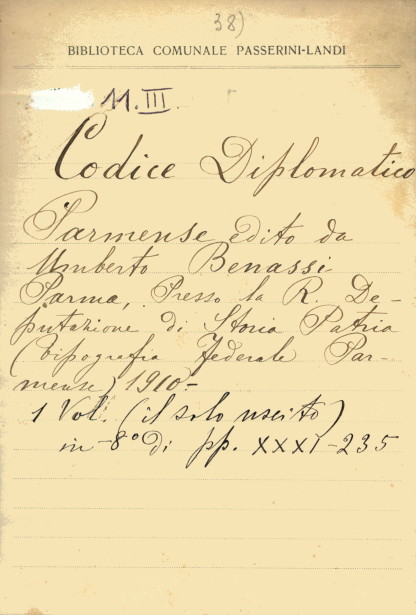 38)
BIBLIOTECA COMUNALE PASSERINI-LANDI
11.III.
Codice Diplomatico
Parmense edito da
Umberto Benassi
Parma, Presso la R. De-
putazione di Storia Patria
(tipografia Federale Par-
mense) 1910.-
1 Vol. (il solo uscito)
in-8° di pp. XXXI-235